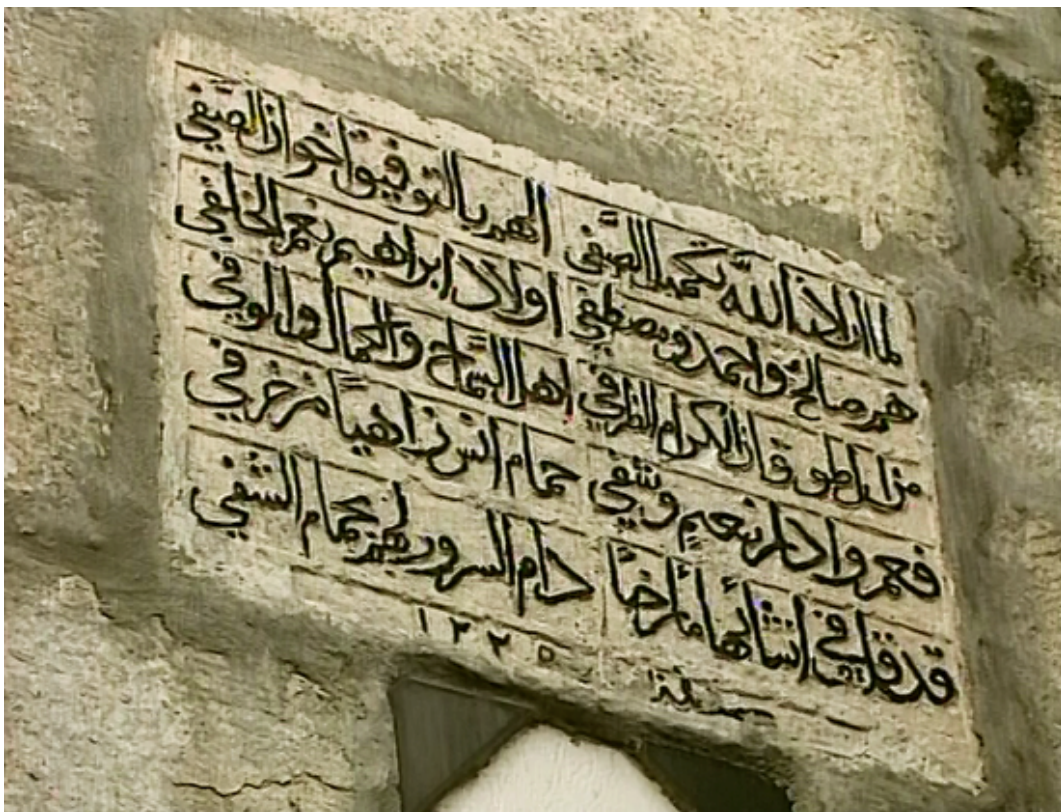 لما اراد الله تكميل الصَّفي الهم بالتوفيق اخوان الصَّفي
هم صالح واحمد ومصطفي اولاد ابراهيم نعم الخلفي
من ال طوقان الكرام الظرفي اهل السَّماح والجمال والوفي
فعمروا دار نعيمٍ وشفي حمام انس زاهياً مزخرفي
قد قال في انشائها مأرخاً دام السرور لهم بحمام الشفي
سنة ١٢٢٥